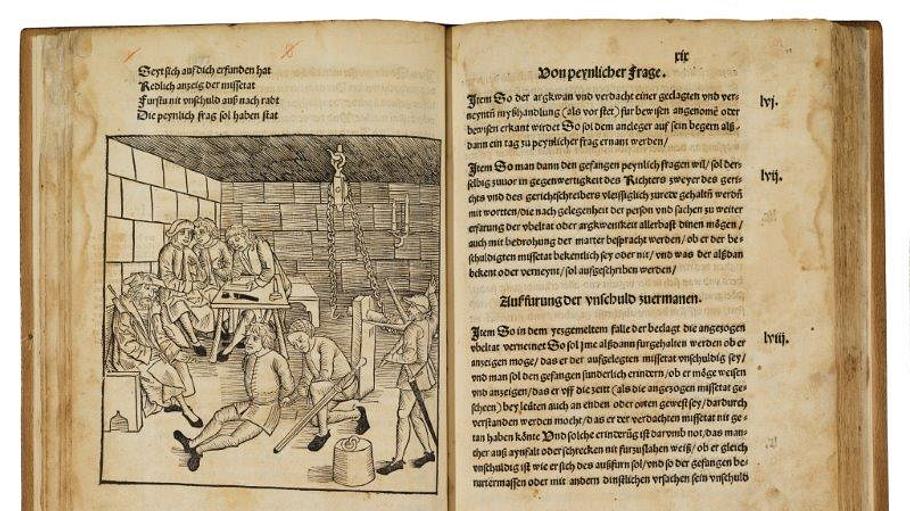 Seyt sich auf dich erfunden hat
Redlich anzeig der missetat
Furstu nit vnschuld auß nach radt
Die peynlich frag sol haben stat
xix
Von peynlicher Frage.
Item So der argkwan vnd verdacht einer geclagten vnd ver-
neynten myßhandlung (als vor stet) fur bewisen angenome oder
bewisen erkant wirdet So sol dem ancleger auf sein begern alß-
dann ein tag zu peynlicher frag ernant werden/
lvj.
Item So man dann den gefangen peynlich fragen wil/ sol der-
selbig zuuor in gegenwertigkeit des Richters zweyer des geri-
chts vnd des gerichtschreibers vleissiglich zurede gehaltn werdn
mit wortten/ die nach gelegenheit der person vnd sachen zu weiter
erfarung der vbeltat oder argkwenikeit allerbast dinen mögen/
auch mit bedrohung der marter bespracht werden/ ob er der be-
schuldigten missetat bekentlich sey oder nit/ vnd was der alßdan
bekent oder verneynt/ sol aufgeschriben werden/
lvij.
Auffurung der vnschuld zuermanen.
Item So in dem yezgemeltem falle der beclagt die angezogen
vbeltat verneinet So sol jme alßdann furgehalten werden ob er
anzeigen moge/ das er der aufgelegten missetat vnschuldig sey/
vnd man sol den gefangen sunderlich erindern/ ob er möge weisen
vnd anzeigen/ das er vff die zeitt (als die angezogen missetat ge-
scheen) bey leüten auch an enden oder orten gewest sey/ dardurch
verstanden werden mocht/ das er der verdachten missetat nit ge-
tan haben könte Vnd solche erinderūg ist darumb not/ das man-
cher auß aynfalt oder schrecken nit furzuslahen weiß/ ob er gleich
vnschuldig ist wie er sich des außfurn sol/ vnd so der gefangen be-
rurtermassen oder mit andern dinstlichen vrsachen sein vnschuld
lviij.